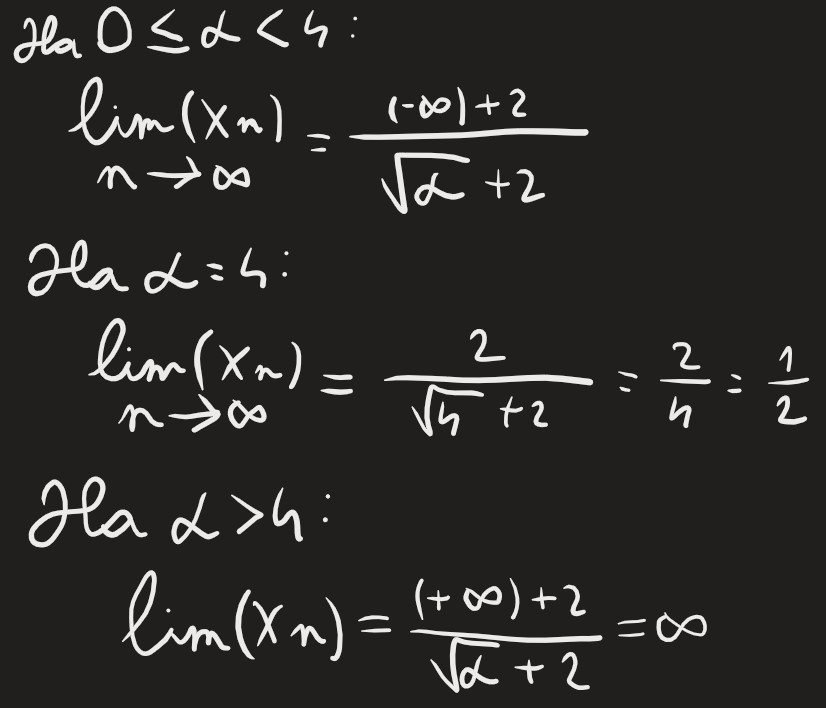 Ha 0 ≤ α < 4:
lim(xn) n→∞ = ((-∞)+2)/(√α +2)
Ha α = 4:
lim(xn) n→∞ = 2/(√4 +2) = 2/4 = 1/2
Ha α > 4:
lim(xn) = ((+∞)+2)/(√α + 2) = ∞